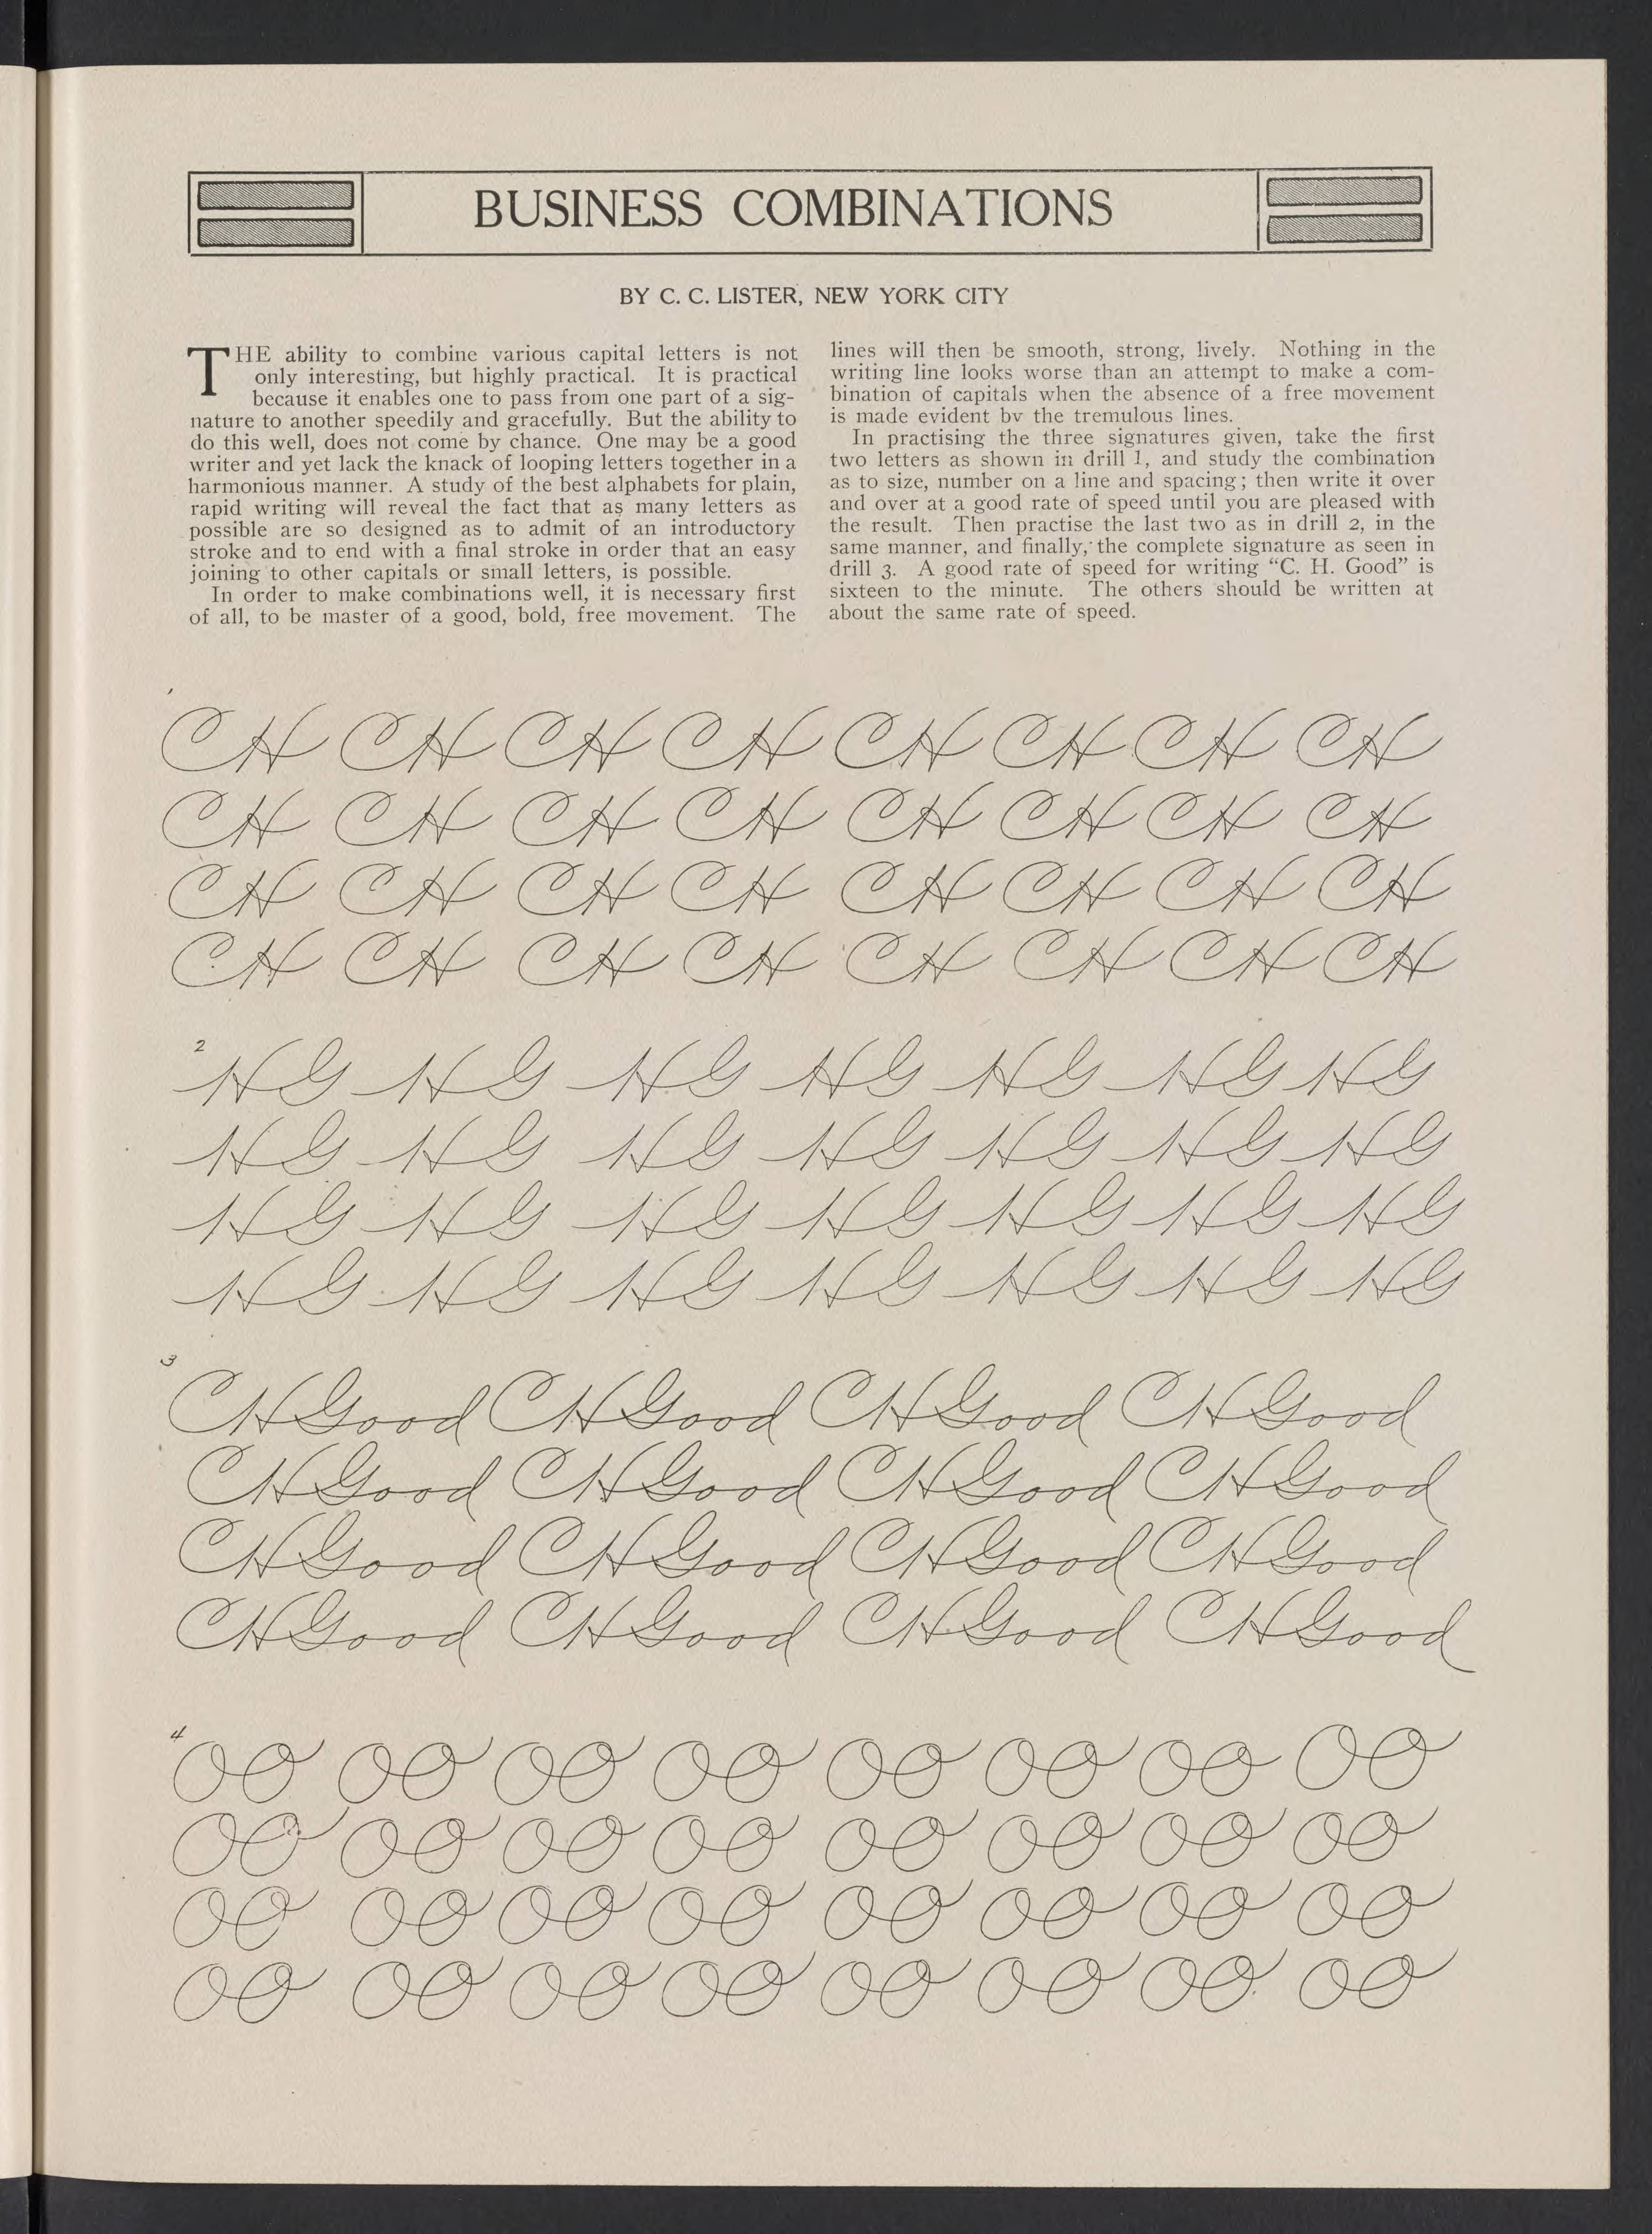 BUSINESS COMBINATIONS
BY C. C. LISTER, NEW YORK CITY
THE ability to combine various capital letters is not
only interesting, but highly practical. It is practical
because it enables one to pass from one part of a sig-
nature to another speedily and gracefully. But the ability to
do this well, does not come by chance. One may be a good
writer and yet lack the knack of looping letters together in a
harmonious manner. A study of the best alphabets for plain,
rapid writing will reveal the fact that as many letters as
possible are so designed as to admit of an introductory
stroke and to end with a final stroke in order that an easy
joining to other capitals or small letters, is possible.
In order to make combinations well, it is necessary first
of all, to be master of a good, bold, free movement. The
lines will then be smooth, strong, lively. Nothing in the
writing line looks worse than an attempt to make a com-
bination of capitals when the absence of a free movement
is made evident by the tremulous lines.
In practising the three signatures given, take the first
two letters as shown in drill 1, and study the combination
as to size, number on a line and spacing; then write it over
and over at a good rate of speed until you are pleased with
the result. Then practise the last two as in drill 2, in the
same manner, and finally, the complete signature as seen in
drill 3. A good rate of speed for writing “C. H. Good” is
sixteen to the minute. The others should be written at
about the same rate of speed.
CH CH CH CH CH CH CH CH
CH CH CH CH CH CH CH CH
CH CH CH CH CH CH CH CH
CH CH CH CH CH CH CH CH
2
HG HG HG HG HG HG HG
HG HG HG HG HG HG HG
HG HG HG HG HG HG HG
HG HG HG HG HG HG HG
3
CHGood CHGood CHGood CHGood
CHGood CHGood CHGood CHGood
CHGood CHGood CHGood CHGood
CHGood CHGood CHGood CHGood
4
OO OO OO OO OO OO OO OO
OO OO OO OO OO OO OO OO
OO OO OO OO OO OO OO OO
OO OO OO OO OO OO OO OO